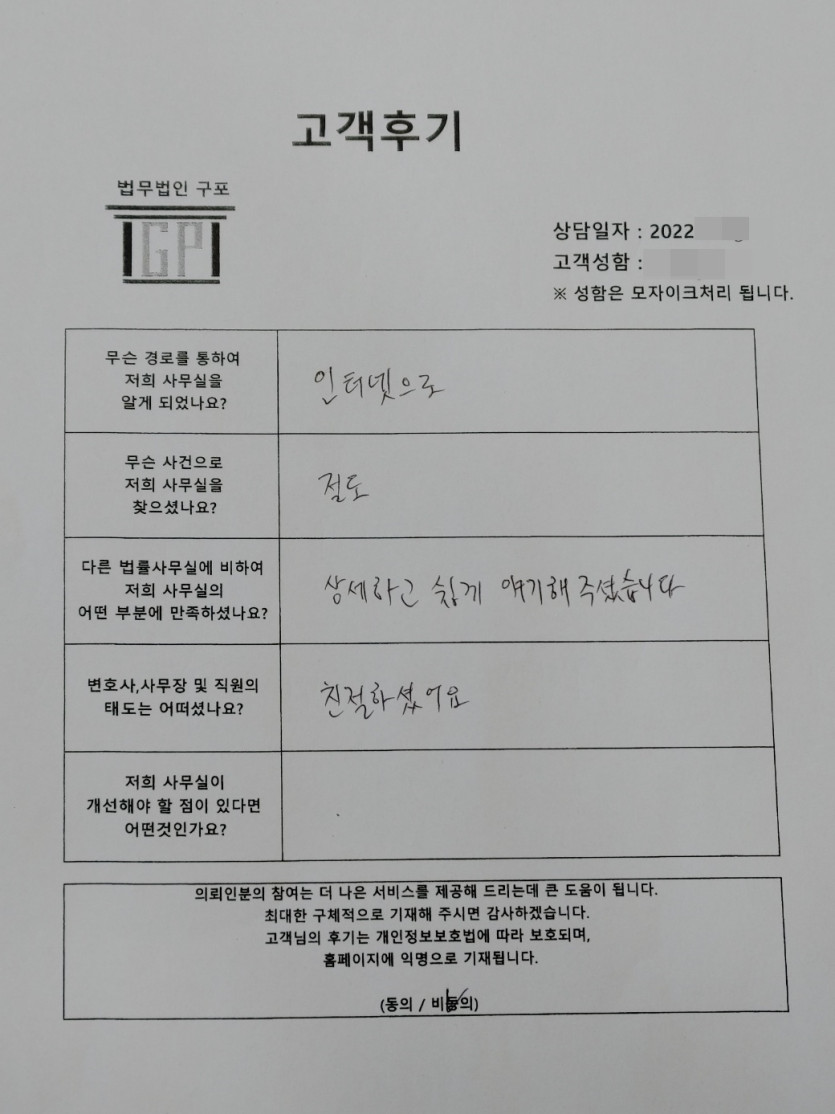 고객후기
법무법인 구포
GP
상담일자 : 2022
고객성함 :
※ 성함은 모자이크처리 됩니다.
무슨 경로를 통하여
저희 사무실을
알게 되었나요?
인터넷으로
무슨 사건으로
저희 사무실을
찾으셨나요?
절도
다른 법률사무실에 비하여
저희 사무실의
어떤 부분에 만족하셨나요?
상세하고 쉽게 얘기해 주셨습니다
변호사,사무장 및 직원의
태도는 어떠셨나요?
친절하셨어요
저희 사무실이
개선해야 할 점이 있다면
어떤것인가요?
의뢰인분의 참여는 더 나은 서비스를 제공해 드리는데 큰 도움이 됩니다.
최대한 구체적으로 기재해 주시면 감사하겠습니다.
고객님의 후기는 개인정보보호법에 따라 보호되며,
홈페이지에 익명으로 기재됩니다.
(동의 / 비동의)